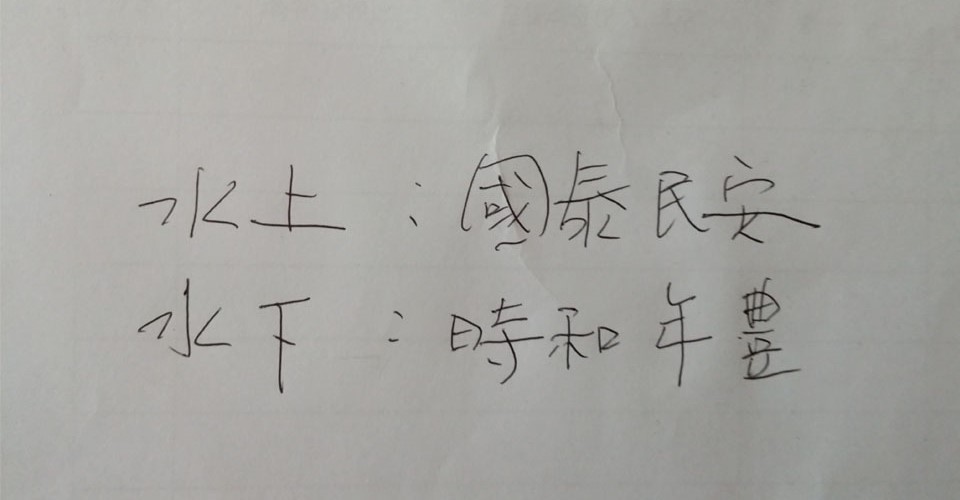 水上：國泰民安
水下：時和年豊